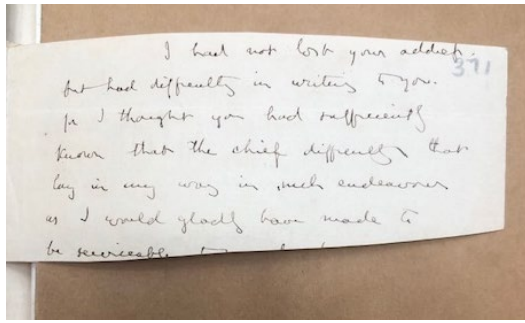 I had not lost your address.
371
but had difficulty in writing to you.
for I thought you had sufficiently
known that the chief difficulty that
lay in my way in such endeavour
as I would gladly have made to
be serviceable to